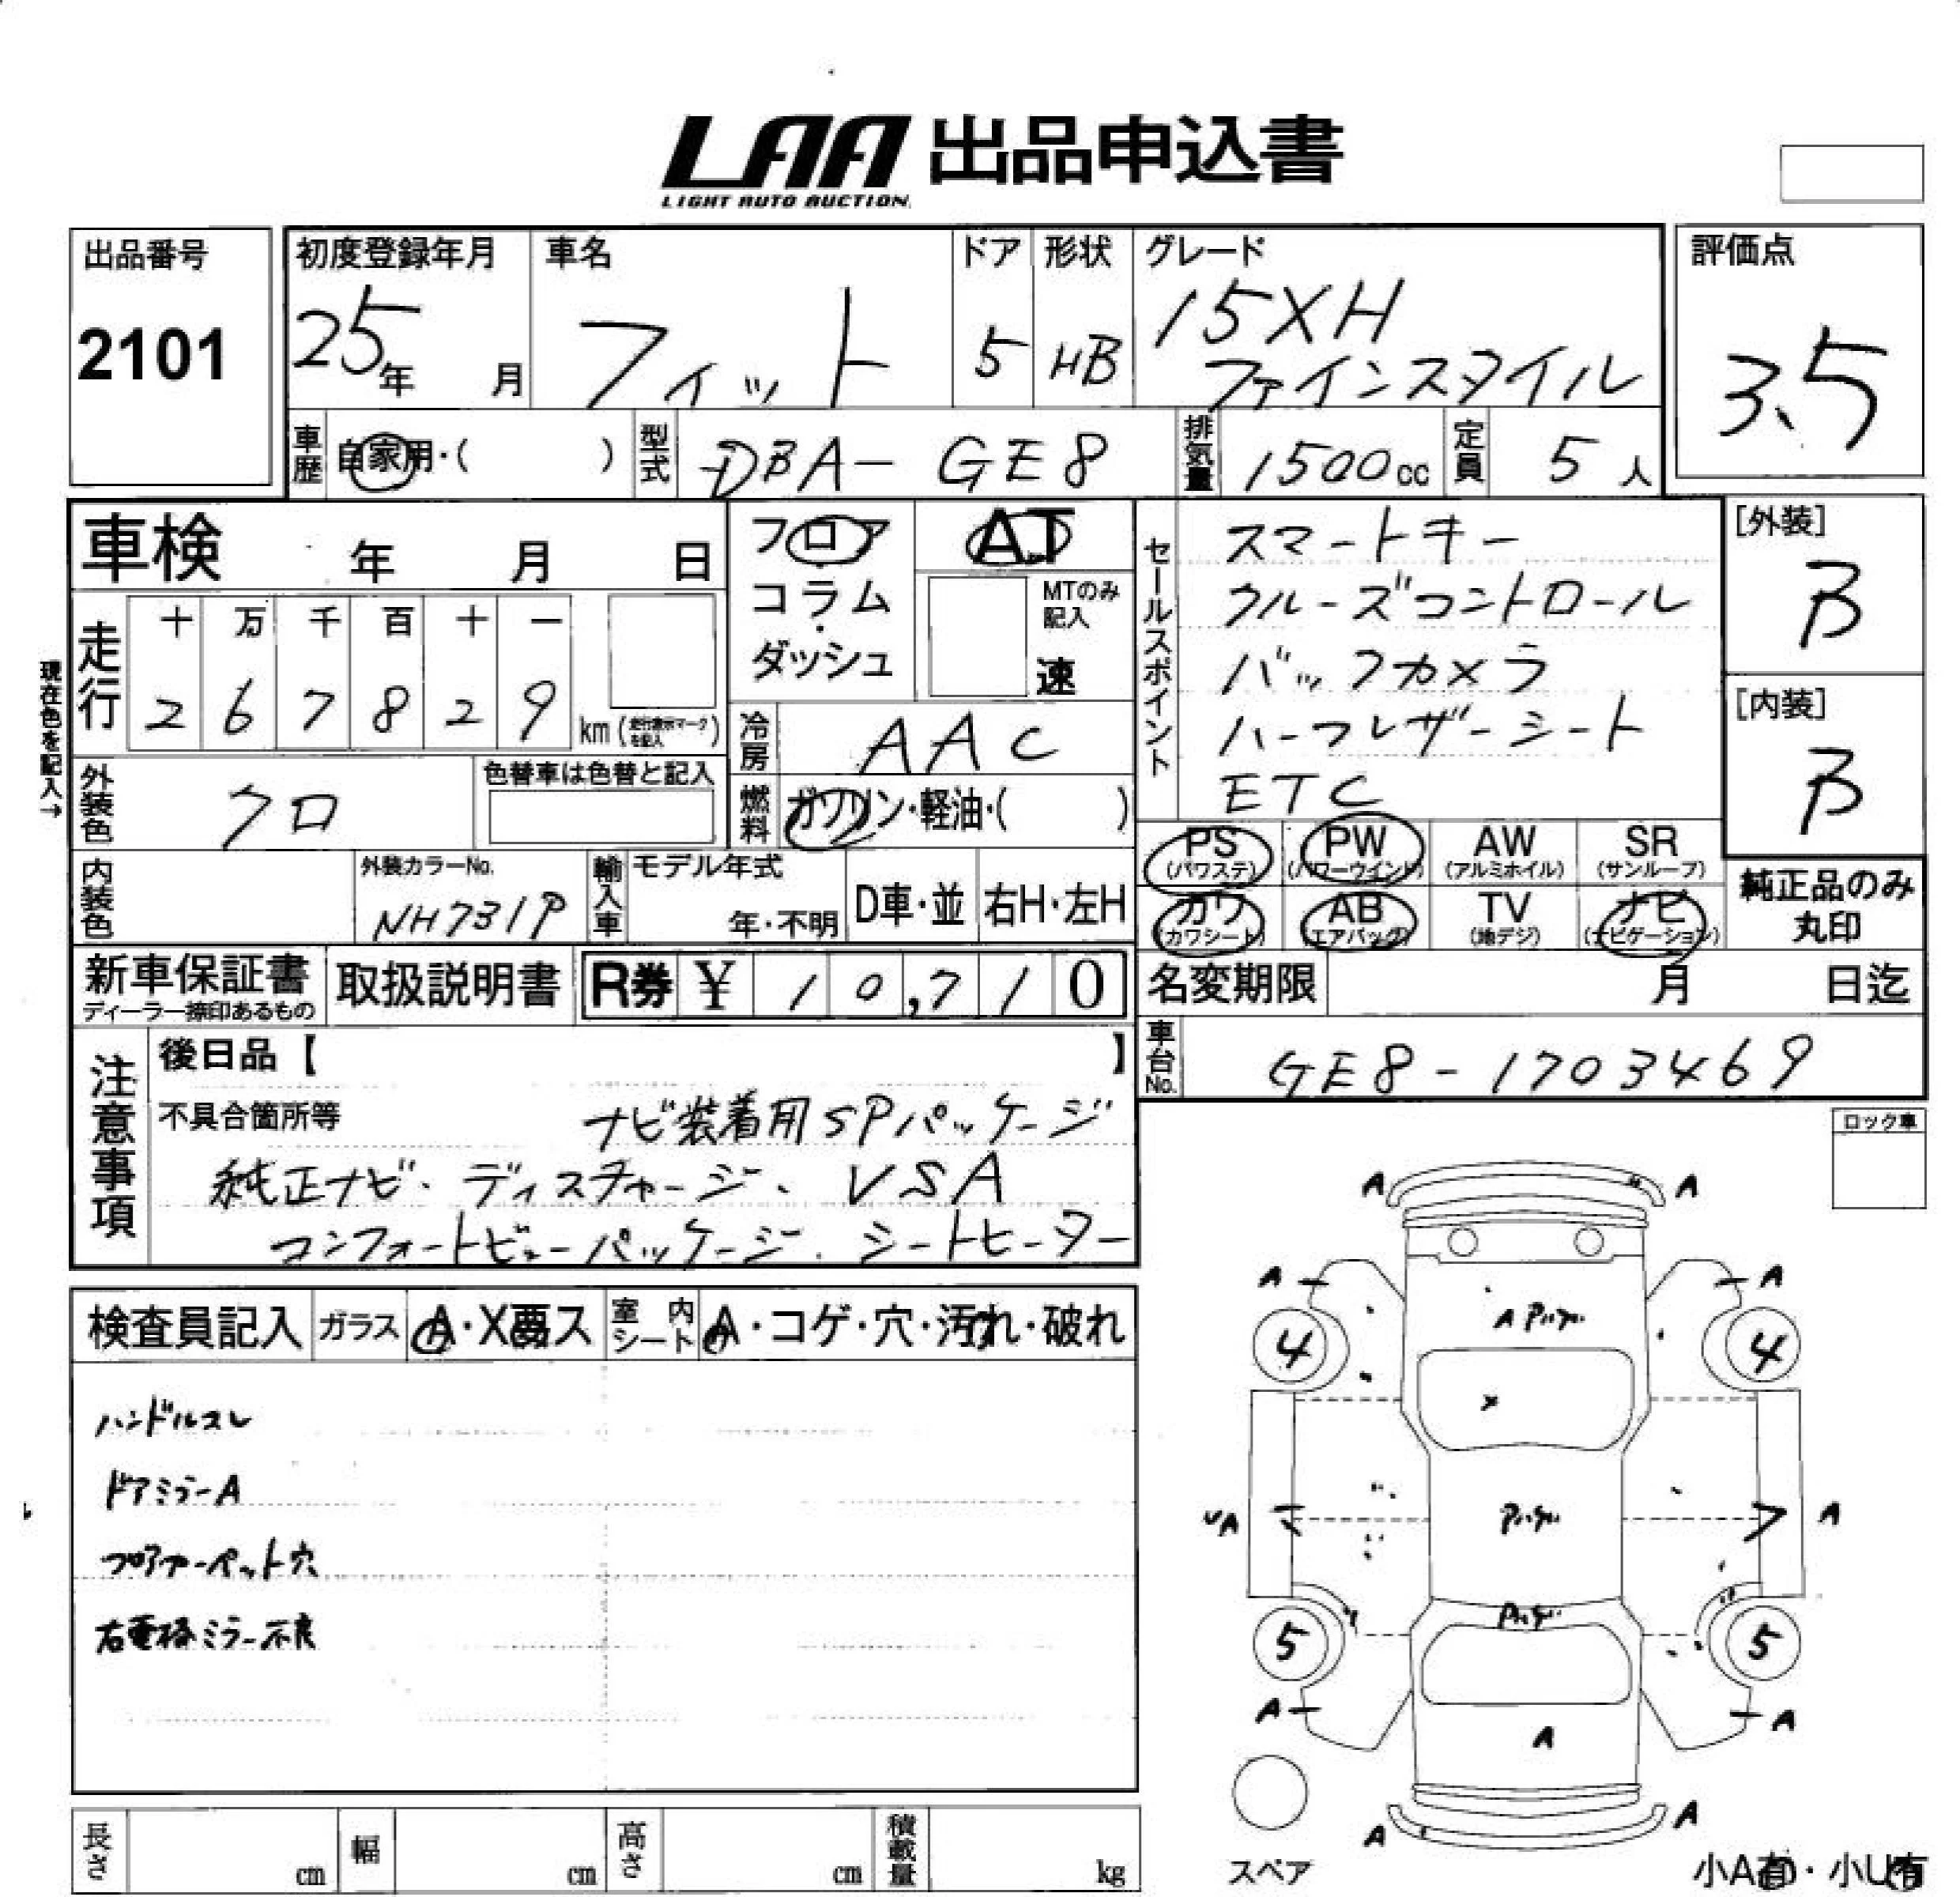 LAA 出品申込書
LIGHT AUTO AUCTION
出品番号
2101
初度登録年月
25年 月
車名
フィット
ドア
5
形状
HB
グレード
15XH
ファインスタイル
評価点
3.5
車歴 自家用・( )
型式 DBA- GE8
排気量 1500cc
定員 5人
車検 年 月 日
現在色を記入→
走行
十 万 千 百 十 一
2 6 7 8 2 9 km (走行表示マークを記入)
外装色 クロ
色替車は色替と記入
内装色
外装カラーNo.
NH731P
フロア
コラム
・
ダッシュ
AT
MTのみ記入
速
冷房 AAC
燃料 ガソリン・軽油・( )
輸入車 モデル年式
年・不明
D車・並
右H・左H
セールスポイント
スマートキー
クルーズコントロール
バックカメラ
ハーフレザーシート
ETC
[外装]
B
[内装]
B
PS (パワステ)
PW (パワーウインド)
AW (アルミホイル)
SR (サンルーフ)
カワ (カワシート)
AB (エアバッグ)
TV (地デジ)
ナビ (ナビゲーション)
純正品のみ
丸印
新車保証書
ディーラー捺印あるもの
取扱説明書
R券 ¥ 10,710
名変期限 月 日迄
車台No. GE8-1703469
注意事項
後日品【 】
不具合箇所等 ナビ装着用SPパッケージ
純正ナビ、ディスチャージ、VSA
コンフォートビューパッケージ、シートヒーター
ロック車
検査員記入
ガラス A・X要ス
室内シート A・コゲ・穴・汚れ・破れ
ハンドルスレ
ドアミラーA
フロアカーペット穴
右電格ミラー不良
A A
A A
A
4 4
X
UA A
5 5
A A
A
A A
スペア
小A有・小U有
長さ cm
幅 cm
高さ cm
積載量 kg